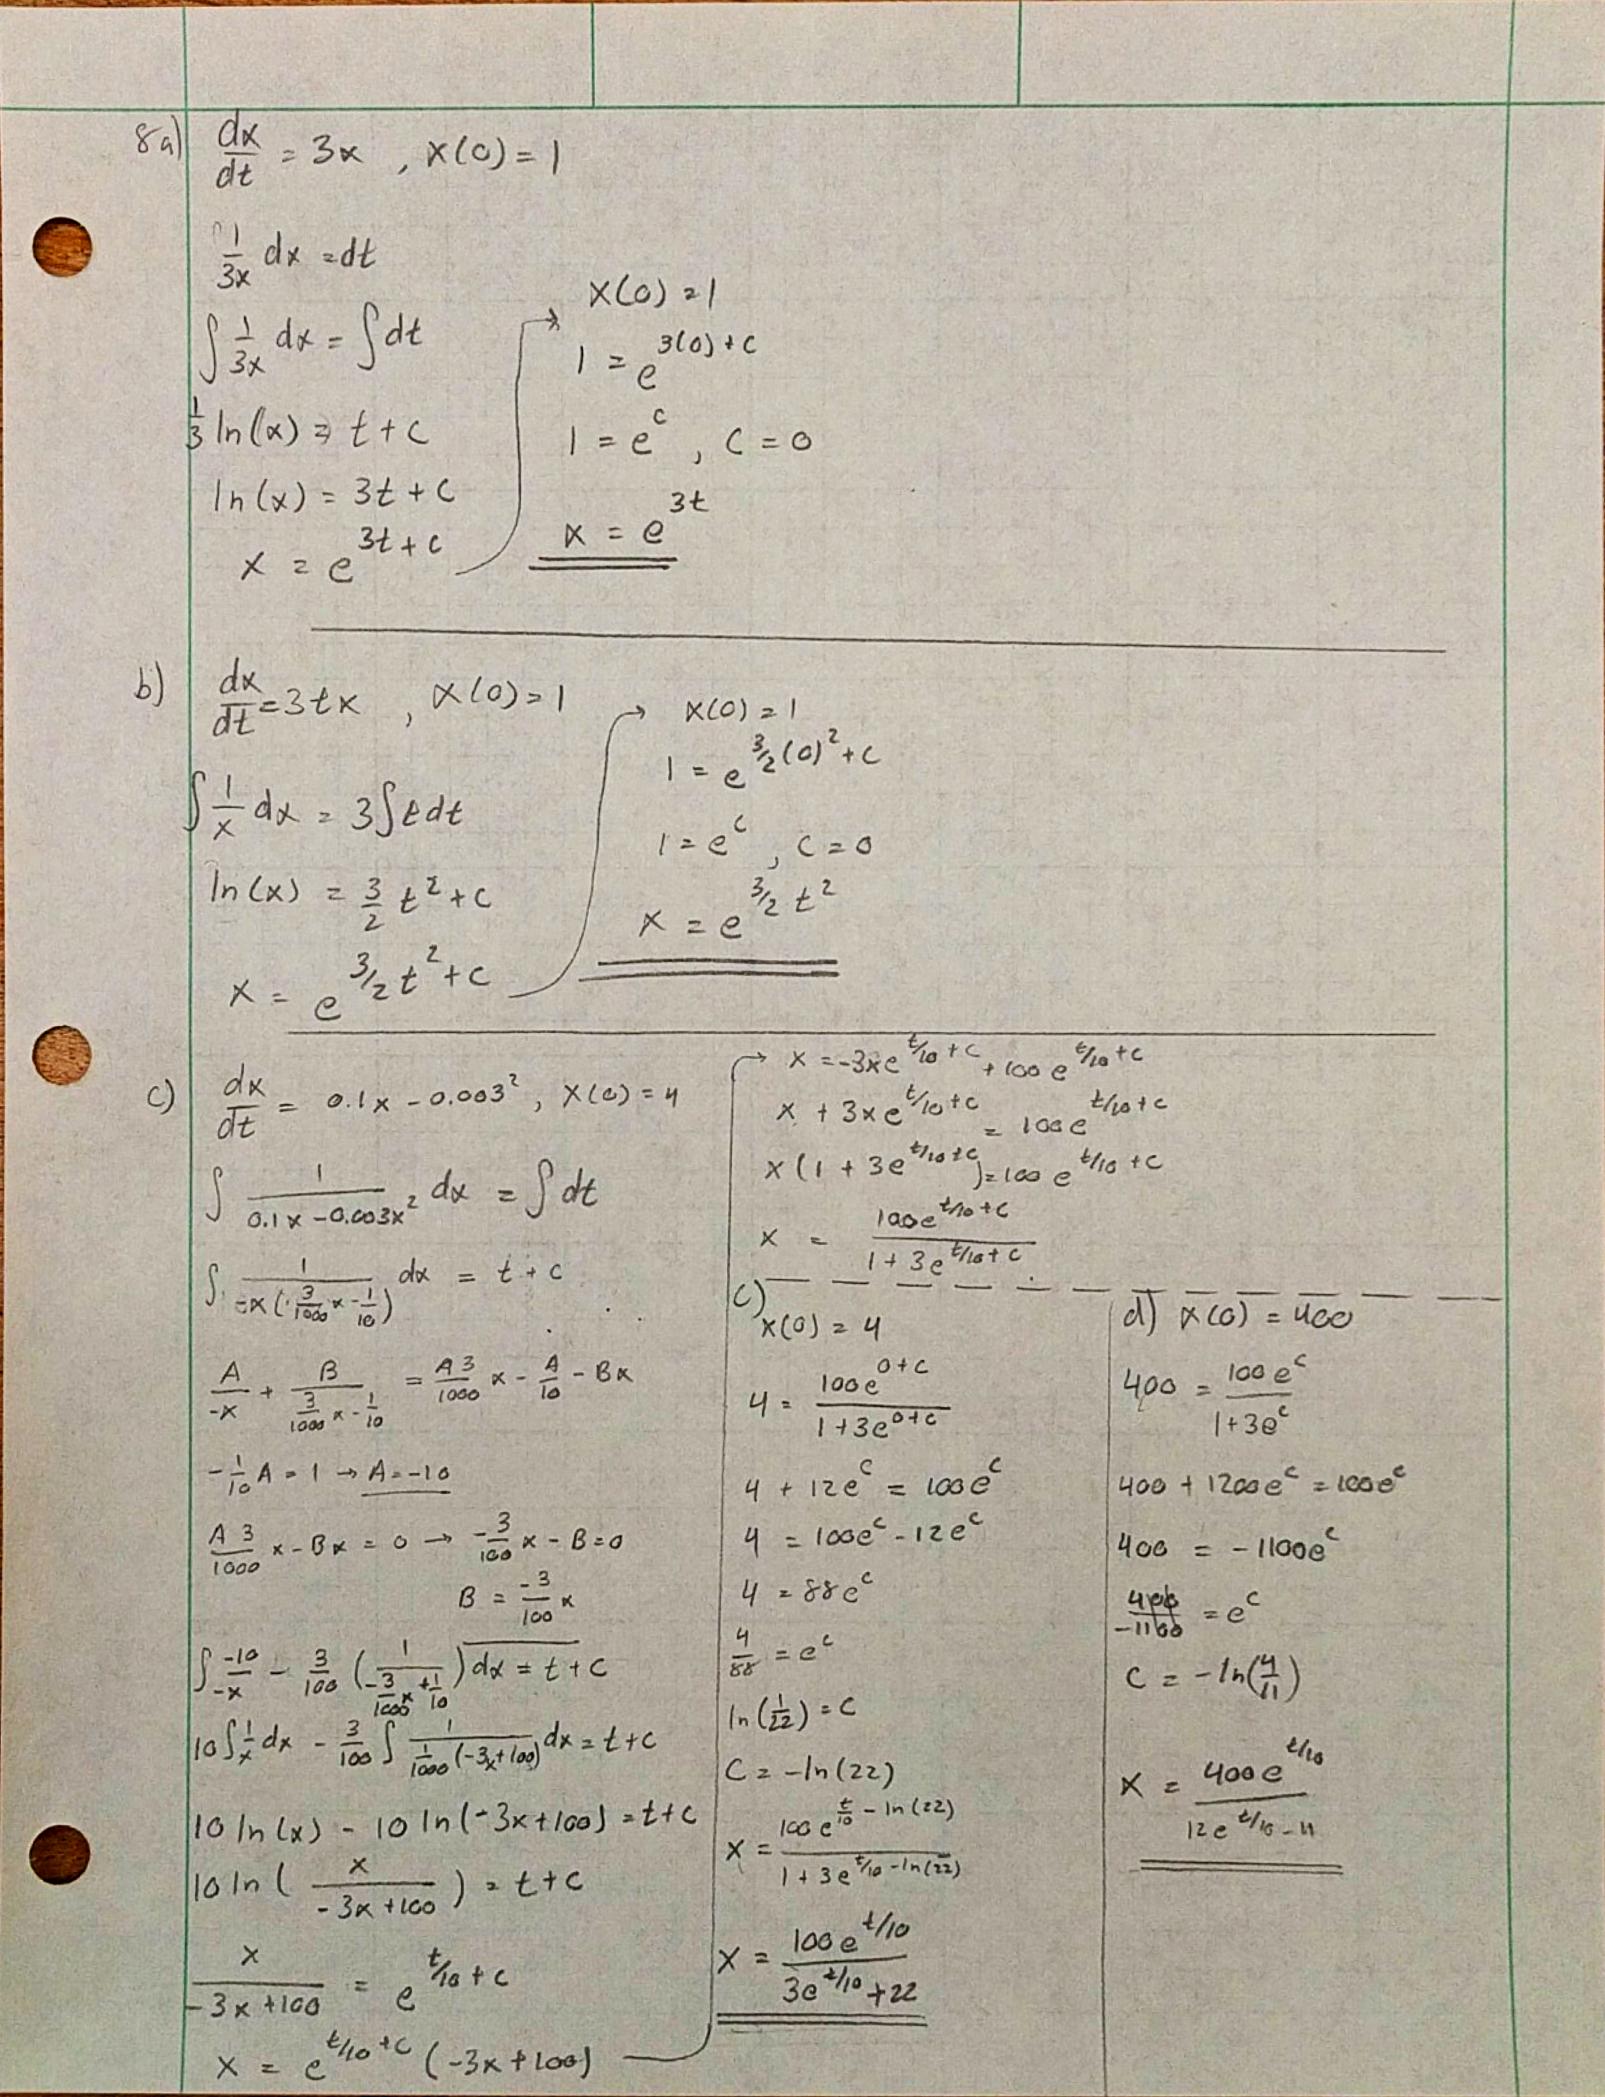 8a) dx/dt = 3x , x(0) = 1
1/3x dx = dt
∫ 1/3x dx = ∫ dt
1/3 ln(x) = t + c
ln(x) = 3t + c
x = e^(3t + c)
x(0) = 1
1 = e^(3(0) + c)
1 = e^c , c = 0
x = e^(3t)
b) dx/dt = 3tx , x(0) = 1
∫ 1/x dx = 3∫ t dt
ln(x) = 3/2 t² + c
x = e^(3/2 t² + c)
x(0) = 1
1 = e^(3/2 (0)² + c)
1 = e^c , c = 0
x = e^(3/2 t²)
c) dx/dt = 0.1x - 0.003² , x(0) = 4
∫ 1/(0.1x - 0.003x²) dx = ∫ dt
∫ 1/(-x(3/1000 x - 1/10)) dx = t + c
A/-x + B/(3/1000 x - 1/10) = A3/1000 x - A/10 - Bx
-1/10 A = 1 → A = -10
A3/1000 x - Bx = 0 → -3/100 x - B = 0
B = -3/100 x
∫ -10/-x - 3/100 (1/(-3/1000 x + 1/10)) dx = t + c
10∫ 1/x dx - 3/100 ∫ 1/(1/1000 (-3x + 100)) dx = t + c
10 ln(x) - 10 ln(-3x + 100) = t + c
10 ln( x/(-3x + 100) ) = t + c
x/(-3x + 100) = e^(t/10 + c)
x = e^(t/10 + c) (-3x + 100)
x = -3xe^(t/10 + c) + 100e^(t/10 + c)
x + 3xe^(t/10 + c) = 100e^(t/10 + c)
x(1 + 3e^(t/10 + c)) = 100e^(t/10 + c)
x = 100e^(t/10 + c)/(1 + 3e^(t/10 + c))
c) x(0) = 4
4 = 100e^(0 + c)/(1 + 3e^(0 + c))
4 + 12e^c = 100e^c
4 = 100e^c - 12e^c
4 = 88e^c
4/88 = e^c
ln(1/22) = c
c = -ln(22)
x = 100e^(t/10 - ln(22))/(1 + 3e^(t/10 - ln(22)))
x = 100e^(t/10)/(3e^(t/10) + 22)
d) x(0) = 400
400 = 100e^c/(1 + 3e^c)
400 + 1200e^c = 100e^c
400 = -1100e^c
400/-1100 = e^c
c = -ln(4/11)
x = 400e^(t/10)/(12e^(t/10) - 11)